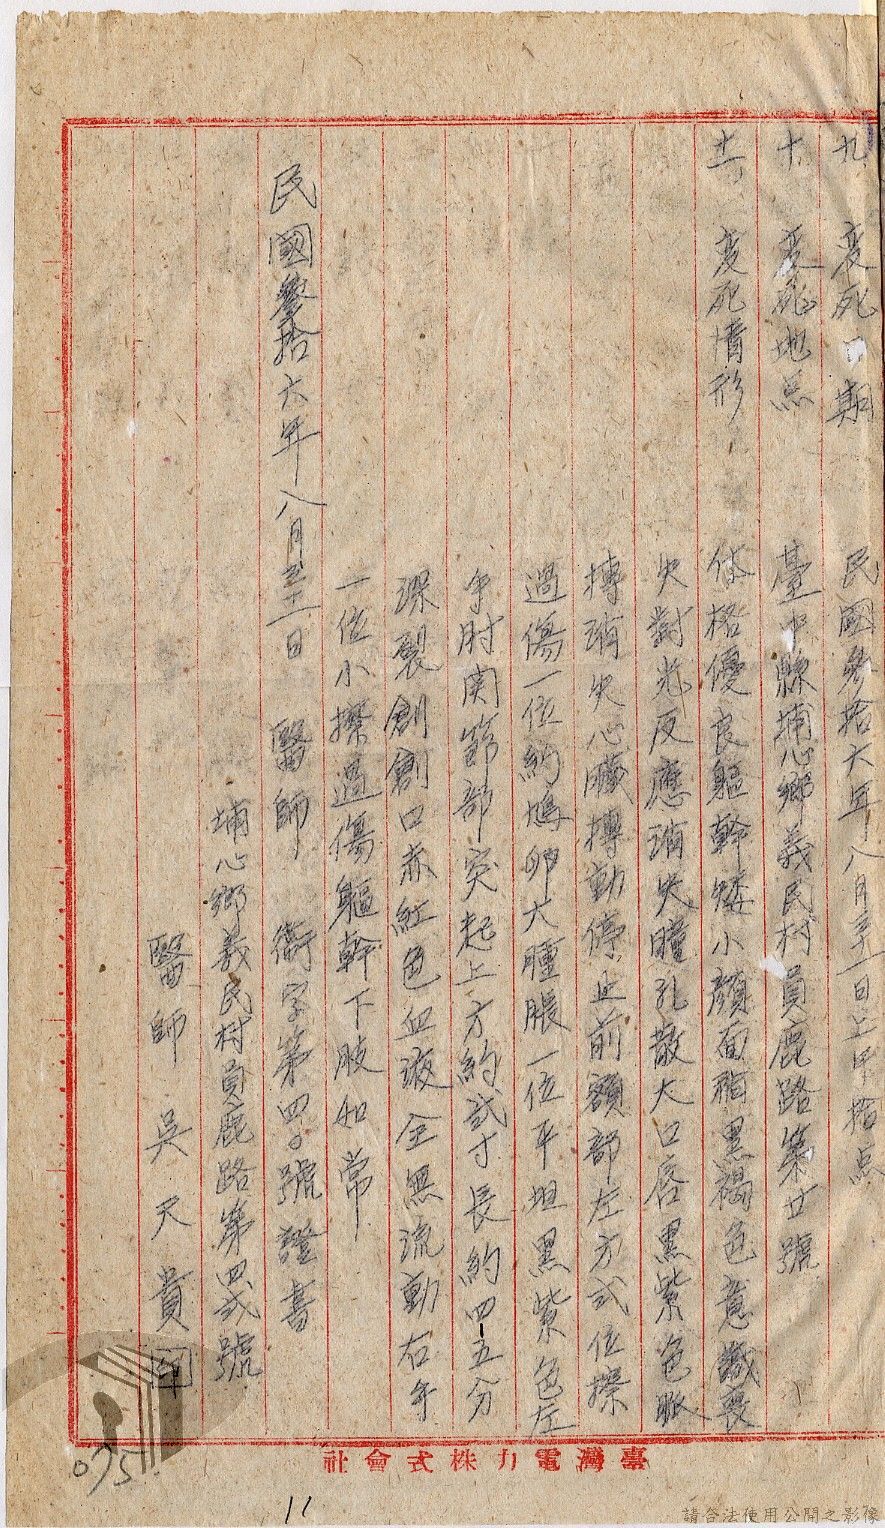 九 変死日期 民國參拾六年八月三十一日上午拾点
十 変死地点 臺中縣埔心鄉義民村員鹿路第廿號
十一 変死情形 体格優良軀幹矮小顏面稍黑褐色意識喪
失對光反應消失瞳孔散大口唇黑紫色脈
搏消失心臟搏動停止前額部左方弍位擦
過傷一位約鳩卵大腫脹一位平坦黑紫色左
手肘関節部突起上方約弍寸長約四-五分
深裂創創口赤紅色血液全無流動右手
一位小擦過傷軀幹下肢如常
民國參拾六年八月三十一日 醫師 衛字第四〇號證書
埔心鄉義民村員鹿路第四弍號
醫師 吳天賞 印
臺灣電力株式會社
075
11
請合法使用公開之影像